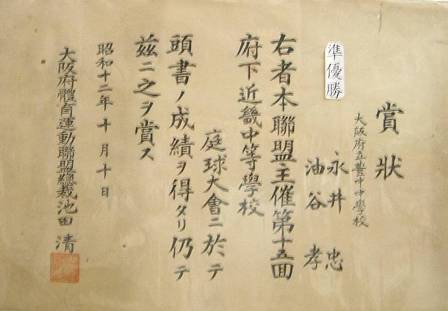 賞狀
大阪府立豊中中學校
永井忠
油谷孝
準優勝
右者本聯盟主催第十五回
府下近畿中等學校
庭球大會ニ於テ
頭書ノ成績ヲ得タリ仍テ
玆ニ之ヲ賞ス
昭和十二年十月十日
大阪府體育運動聯盟總裁池田清